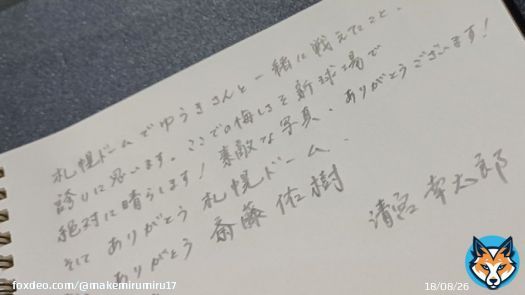 札幌ドームでゆうきさんと一緒に戦えたこと、
誇りに思います。ここでの悔しさを新球場で
絶対に晴らします！素敵な写真、ありがとうございます！
そして ありがとう 札幌ドーム、
ありがとう 斎藤佑樹
清宮幸太郎
foxdeo.com/@makemirumiru17
18/08/26